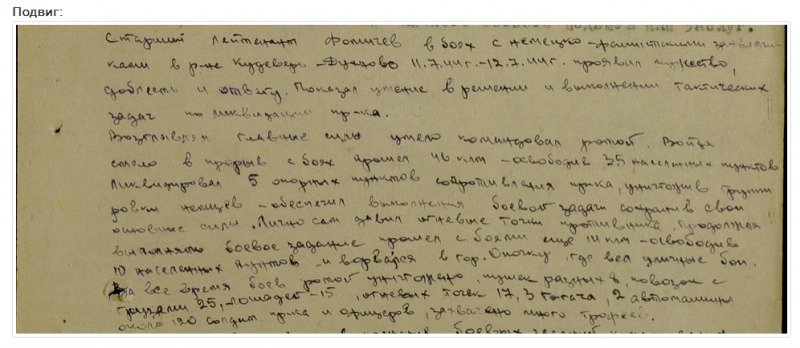 Подвиг:
Старший лейтенант Фомичев в боях с немецко-фашистскими захватчи-
ками в р-не Кудеверь - Духново 11.7.44г.-12.7.44г. проявил мужество,
доблесть и отвагу. Показал умение в решении и выполнении тактических
задач по ликвидации пр-ка.
Возглавляя главные силы умело командовал ротой. Войдя
смело в прорыв с боях прошел 46 клм - освободив 35 населенных пунктов
Ликвидировал 5 опорных пунктов сопротивления пр-ка, уничтожив группи
ровки немцев - обеспечил выполнения боевой задачи сохранив свои
основные силы. Лично сам давил огневые точки противника. Продолжая
выполнять боевое задание прошел с боями еще клм - освободив
10 населенных пунктов и ворвался в гор. Опочку, где вел уличные бои.
За все время боев ротой уничтожено, пушек разных 8, повозок с
грузами 25, лошадей - 15, огневых точек 17, 3 тягача, 2 автомашины
около солдат пр-ка и офицеров, захвачено много трофеев.
боевых